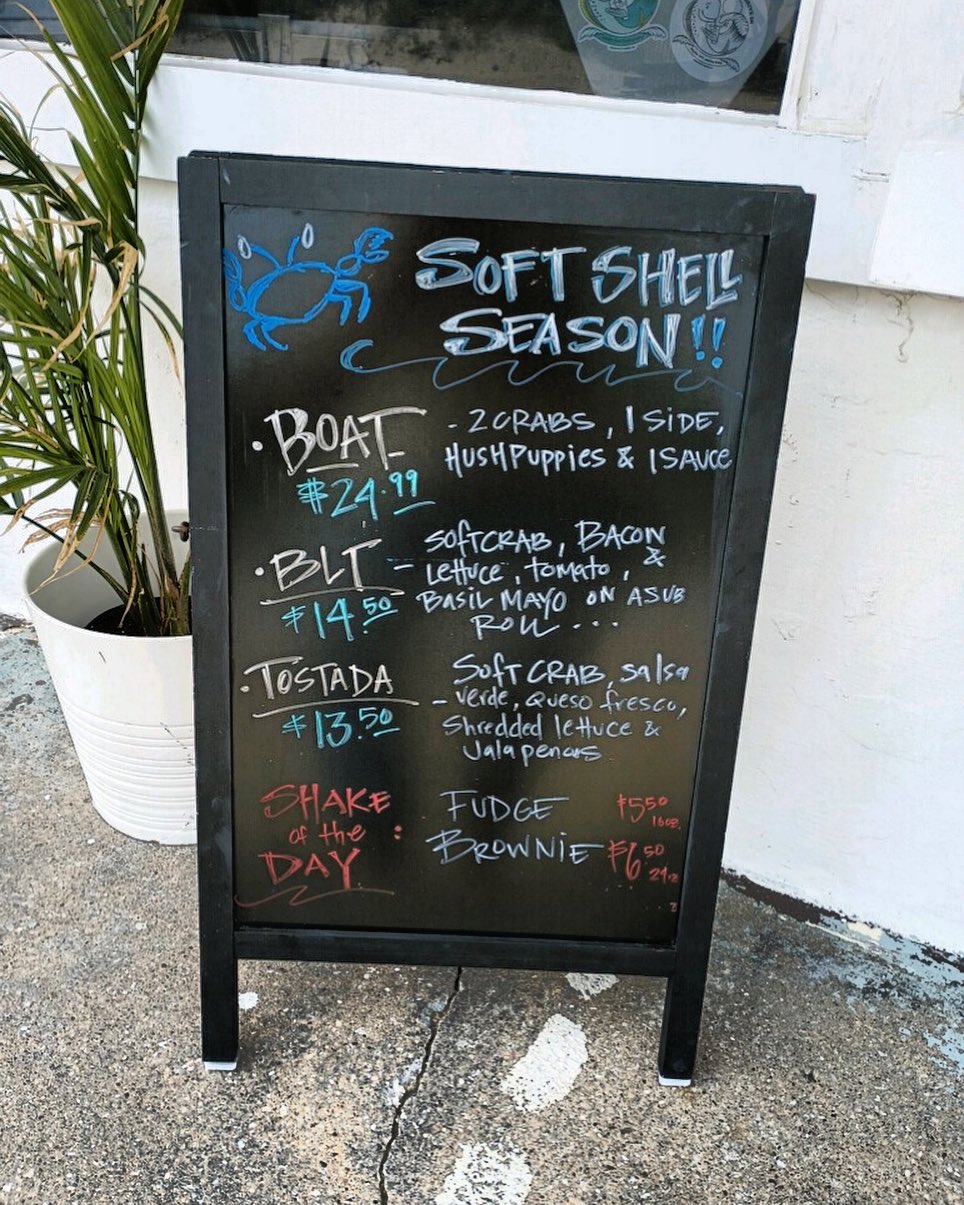 SOFT SHELL
SEASON!!
• BOAT - 2 CRABS, 1 SIDE,
$24.99 HUSHPUPPIES & 1 SAUCE
• BLT - SOFT CRAB, BACON
LETTUCE, TOMATO, &
$14.50 BASIL MAYO ON A SUB
ROLL...
• TOSTADA - SOFT CRAB, salsa
verde, queso fresco,
$13.50 Shredded lettuce &
Jalapenos
SHAKE of the DAY :
FUDGE $5.50 16oz.
BROWNIE $6.50